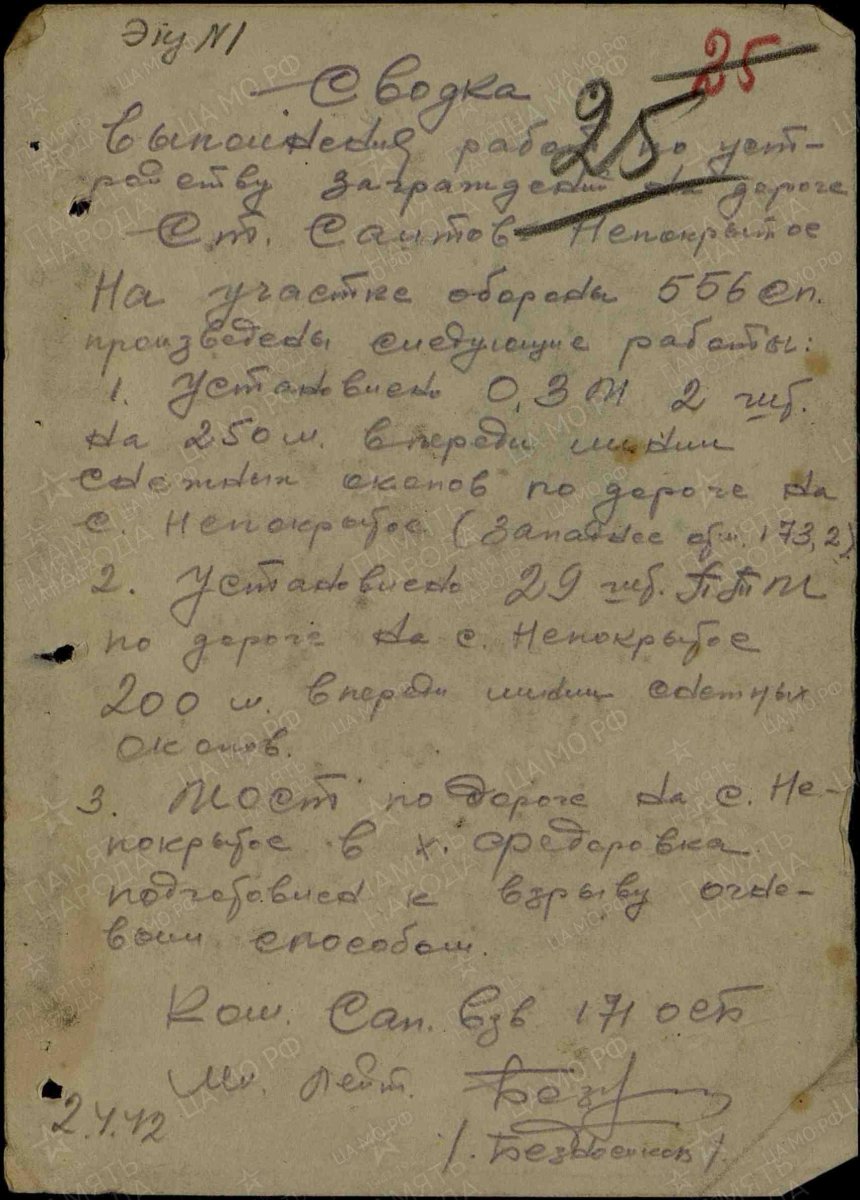 Экз N1
25
25
Сводка
выполнения работ по уст-
ройству заграждений на дороге
Ст. Салтов - Непокрытое
На участке обороны 556 сп.
произведены следующие работы:
1. Установлено О.З.М 2 шт.
на 250 м. впереди линии
снежных окопов по дороге на
с. Непокрытое (западнее отм. 173,2)
2. Установлено 29 шт. ПТМ
по дороге на с. Непокрытое
200 м. впереди линии снежных
окопов.
3. Мост по дороге на с. Не-
покрытое в х. Федоровка
подготовлен к взрыву огне-
вым способом.
Ком. Сап. взв 171 осб
Мл. Лейт.
2.4.42